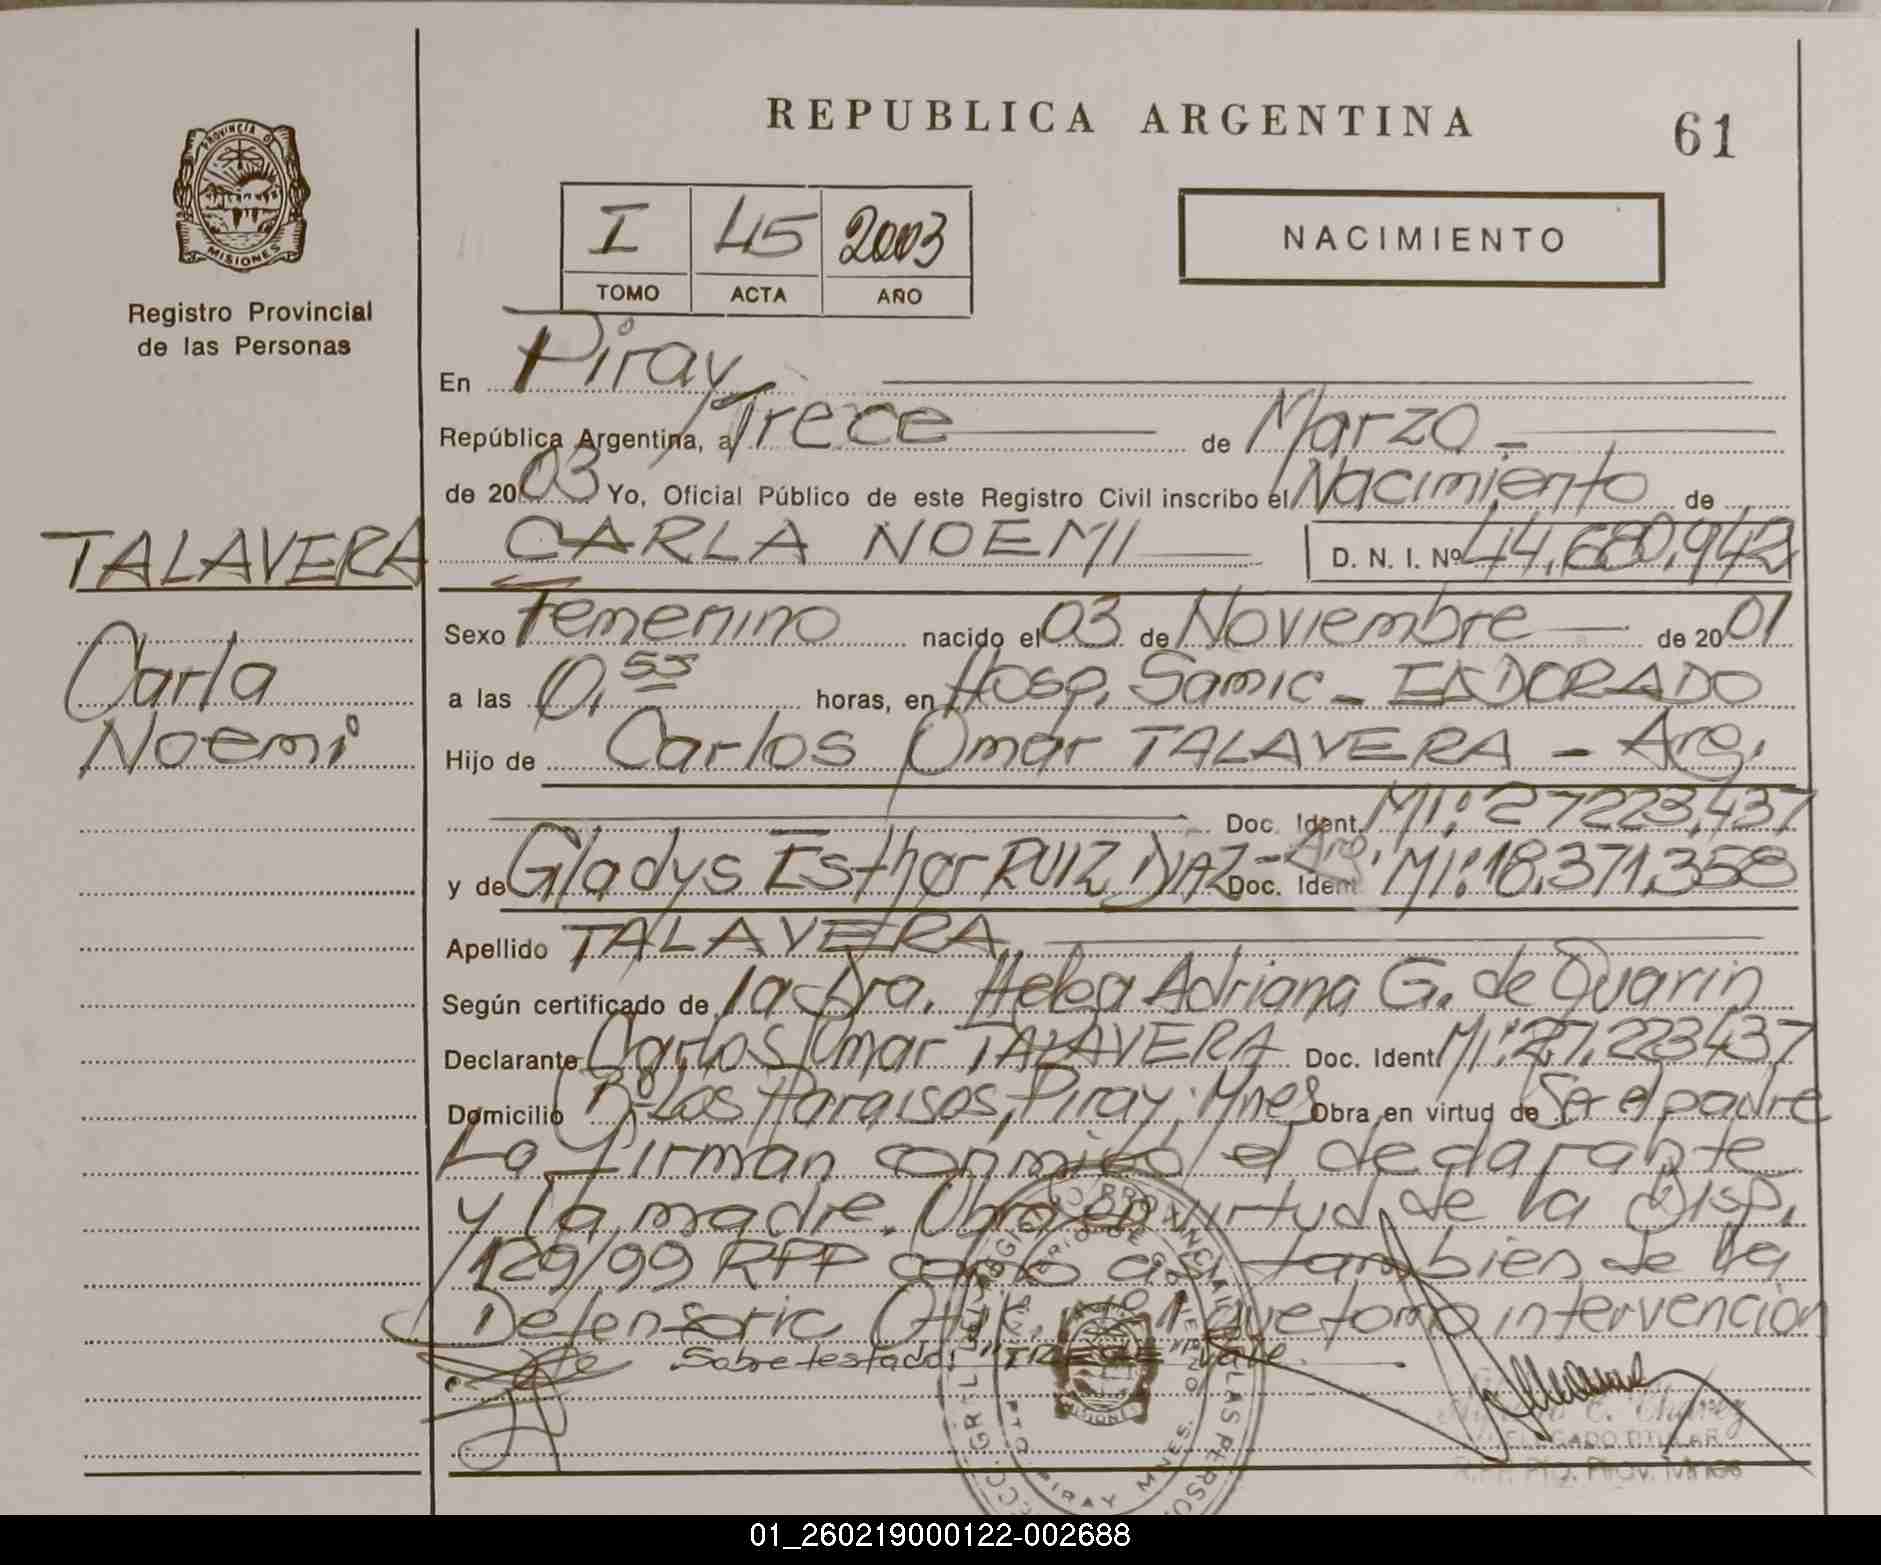 REPUBLICA ARGENTINA
61
PROVINCIA D
MISIONES
Registro Provincial
de las Personas
I 45 2003
TOMO ACTA AÑO
NACIMIENTO
En Piray
República Argentina, a Trece de Marzo
de 2003 Yo, Oficial Público de este Registro Civil inscribo el Nacimiento de
TALAVERA CARLA NOEMI D. N. I. Nº 44,680,942
Carla
Noemi
Sexo Femenino nacido el 03 de Noviembre de 2001
a las 0,55 horas, en Hosp. Samic - ELDORADO
Hijo de Carlos Omar TALAVERA - Arg.
Doc. Ident. MI: 27223,437
y de Gladys Esther RUIZ DIAZ - Arg. Doc. Ident MI: 18,371,358
Apellido TALAVERA
Según certificado de la Dra. Helga Adriana G. de Quarin
Declarante Carlos Omar TALAVERA Doc. Ident MI: 27,223437
Domicilio Bº Los Paraisos, Piray. Mnes Obra en virtud de Ser el padre
La firman conmigo el declarante
y la madre. Obra en virtud de la Disp.
129/99 RPP como así tambien de la
Defensoria que tomo intervención
Sobre testado: "TRECE" Vale.
C. Chávez
DELEGADO TITULAR
R.P.P. Pto. Piray. Mnes
PTO. PIRAY MNES.
MISIONES
01_260219000122-002688